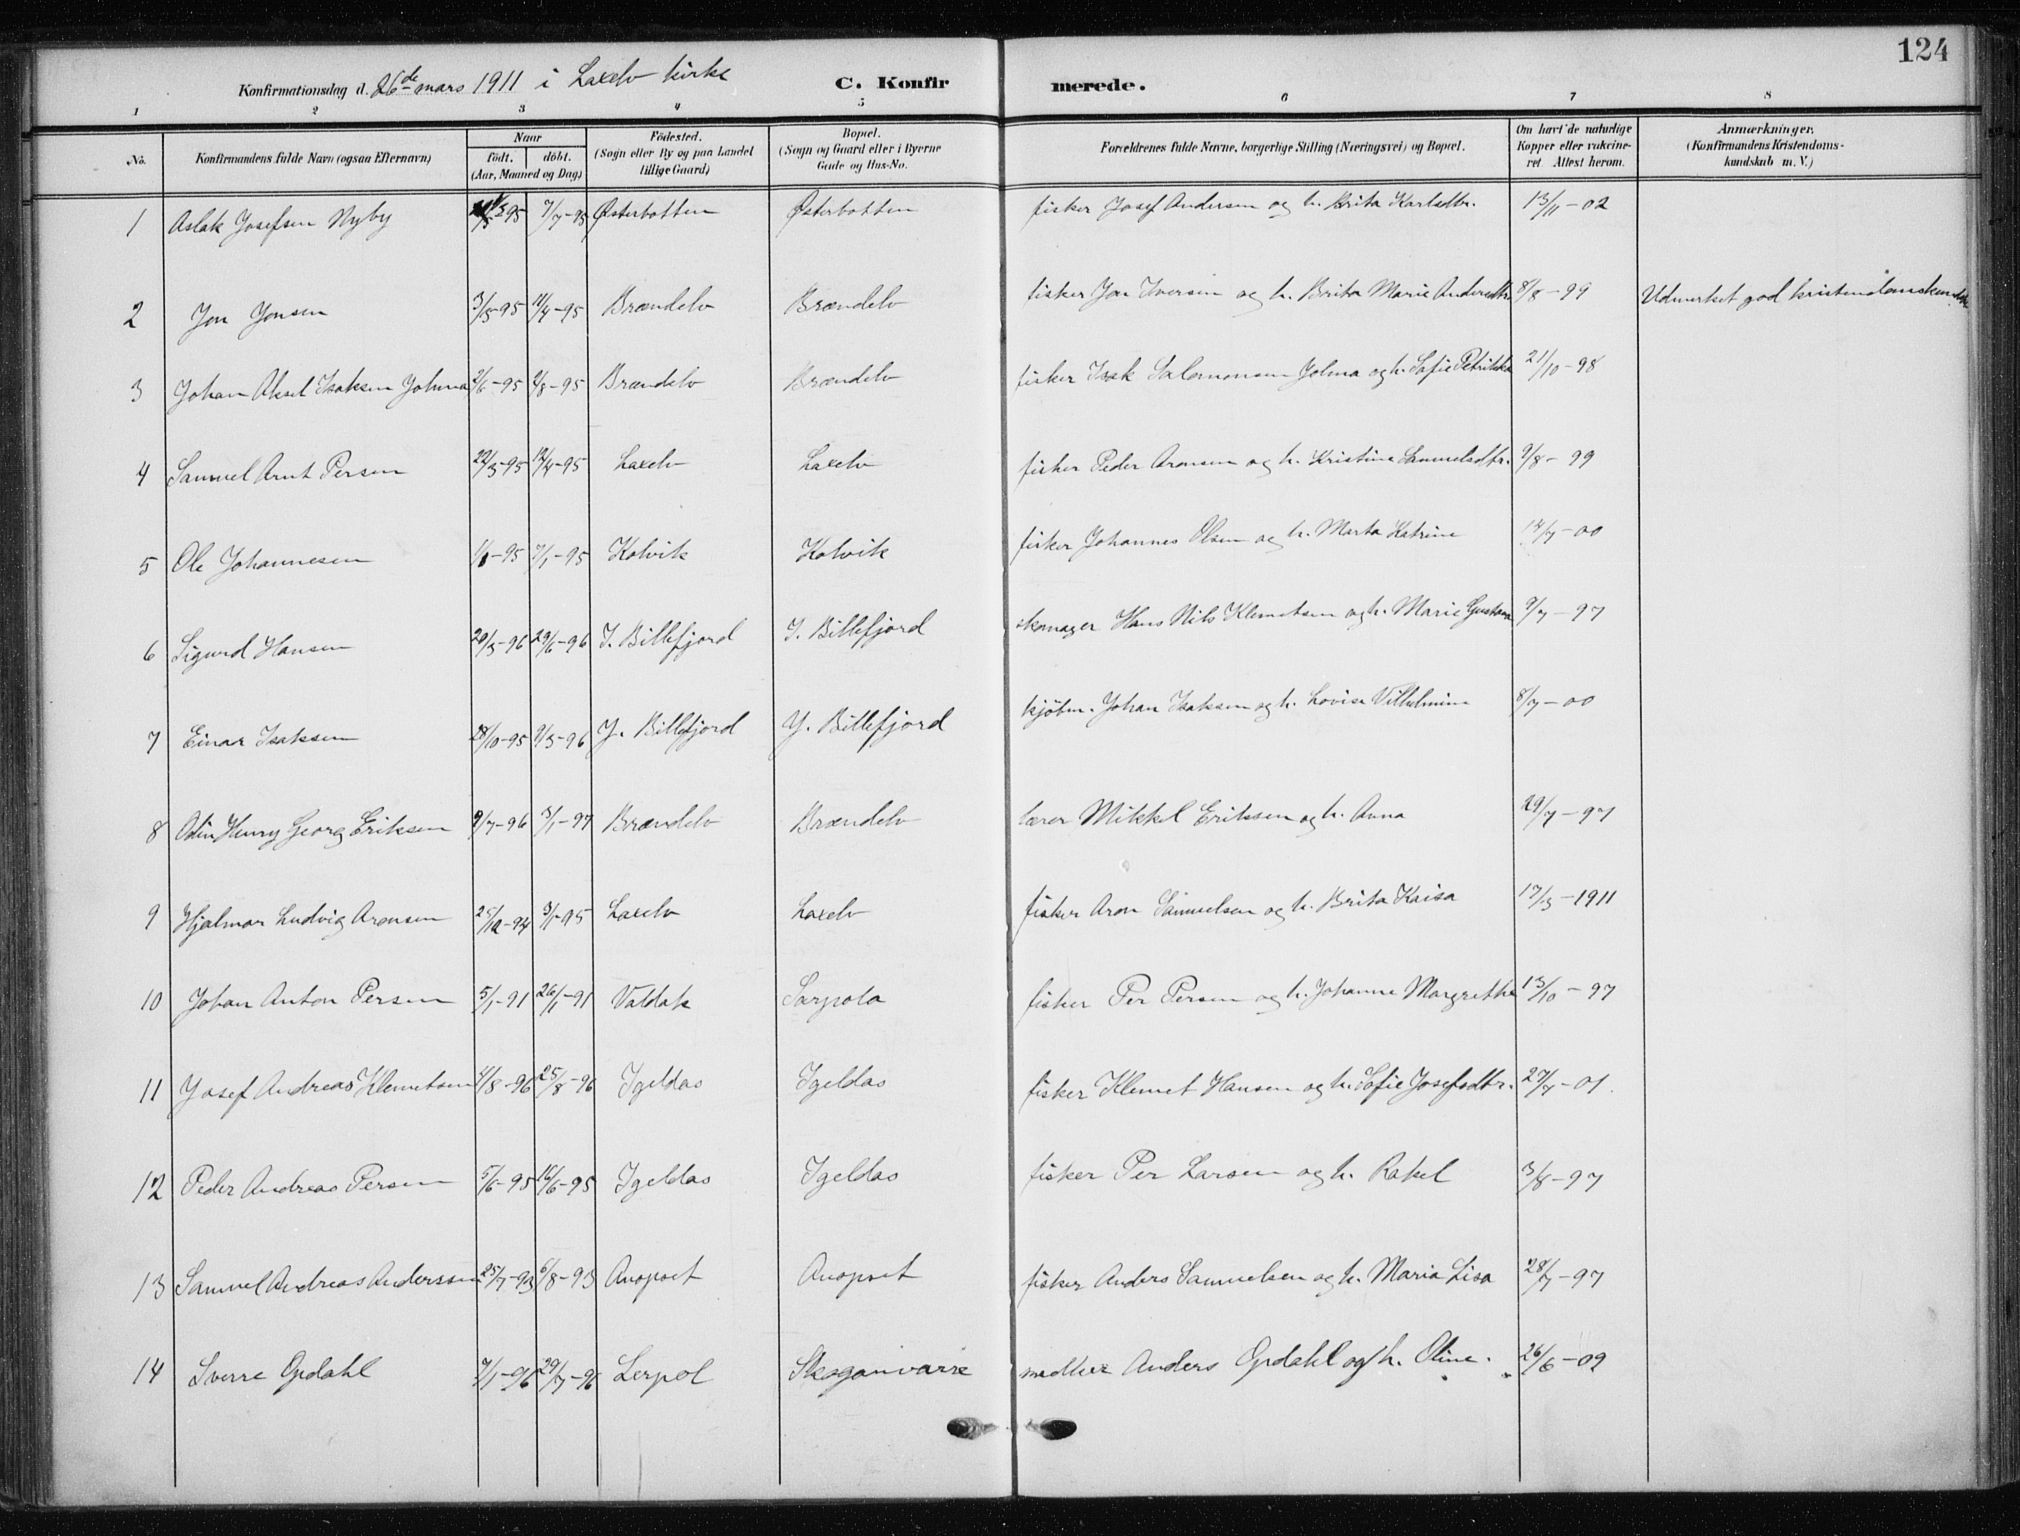 124
Konfirmationsdag d. 26de mars 1911 i Laxelv kirke C. Konfirmerede.
1 2 3 4 5 6 7 8
No. Konfirmandens fulde Navn (ogsaa Efternavn) Naar födt. döbt. (Aar, Maaned og Dag) Födested. (Sogn eller By og paa Landet tillige Gaard) Bopæl. (Sogn og Gaard eller i Byerne Gade og Hus-No. Forældrenes fulde Navne, borgerlige Stilling (Næringsvei) og Bopæl. Om havt de naturlige Kopper eller vakcineret. Attest herom. Anmærkninger. (Konfirmandens Kristendomskundskab m. V.)
1 Aslak Josefsen Nyby 7/7-95 Østerbotten Østerbotten fisker Josef Andersen og h. Brita Karlsdtr. 13/11-02
2 Jon Jonsen 3/3-95 11/4-95 Brændelv Brændelv fisker Jon Iversen og h. Brita Marie Andersdtr 8/8-99 Udmerket god kristendomskundsk.
3 Johan Aksel Isaksen Jolma 2/6-95 2/8-95 Brændelv Brændelv fisker Isak Salomonsen Jolma og h. Sofie Petrikka 21/10-98
4 Samuel Arnt Persen 22/3-95 12/4-95 Laxelv Laxelv fisker Peder Aronsen og h. Kristine Samuelsdtr. 9/8-99
5 Ole Johannesen 1/1-95 7/1-95 Kolvik Kolvik fisker Johannes Olsen og h. Marta Katrine 14/7-00
6 Sigurd Hansen 20/3-96 29/6-96 I. Billefjord I. Billefjord skomager Hans Nils Klemetsen og h. Marie Gustava 9/7-97
7 Einar Isaksen 28/10-95 9/3-96 Y. Billefjord Y. Billefjord kjøbm. Johan Isaksen og h. Lovise Vilhelmine 8/7-00
8 Odin Henry Georg Eriksen 9/7-96 3/1-97 Brændelv Brændelv lærer Mikkel Eriksen og h. Anna 29/7-97
9 Hjalmar Ludvig Aronsen 25/12-94 3/1-95 Laxelv Laxelv fisker Aron Samuelsen og h. Brita Kaisa 17/3-1911
10 Johan Anton Persen 5/1-91 26/1-91 Valdak Sarpola fisker Per Persen og h. Johanne Margrethe 13/10-97
11 Josef Andreas Klemetsen 4/8-96 25/8-96 Igeldas Igeldas fisker Klemet Hansen og h. Sofie Josefsdtr. 27/7-01.
12 Peder Andreas Persen 5/6-95 16/6-95 Igeldas Igeldas fisker Per Larsen og h. Rakel 3/8-97
13 Samuel Andreas Anderssen 25/7-93 6/8-93 Anopset Anopset fisker Anders Samuelsen og h. Maria Lisa 28/7-97
14 Sverre Opdahl 7/1-96 29/7-96 Lerpol Skoganvarre Anders Opdahl og h. Oline. 26/6-09